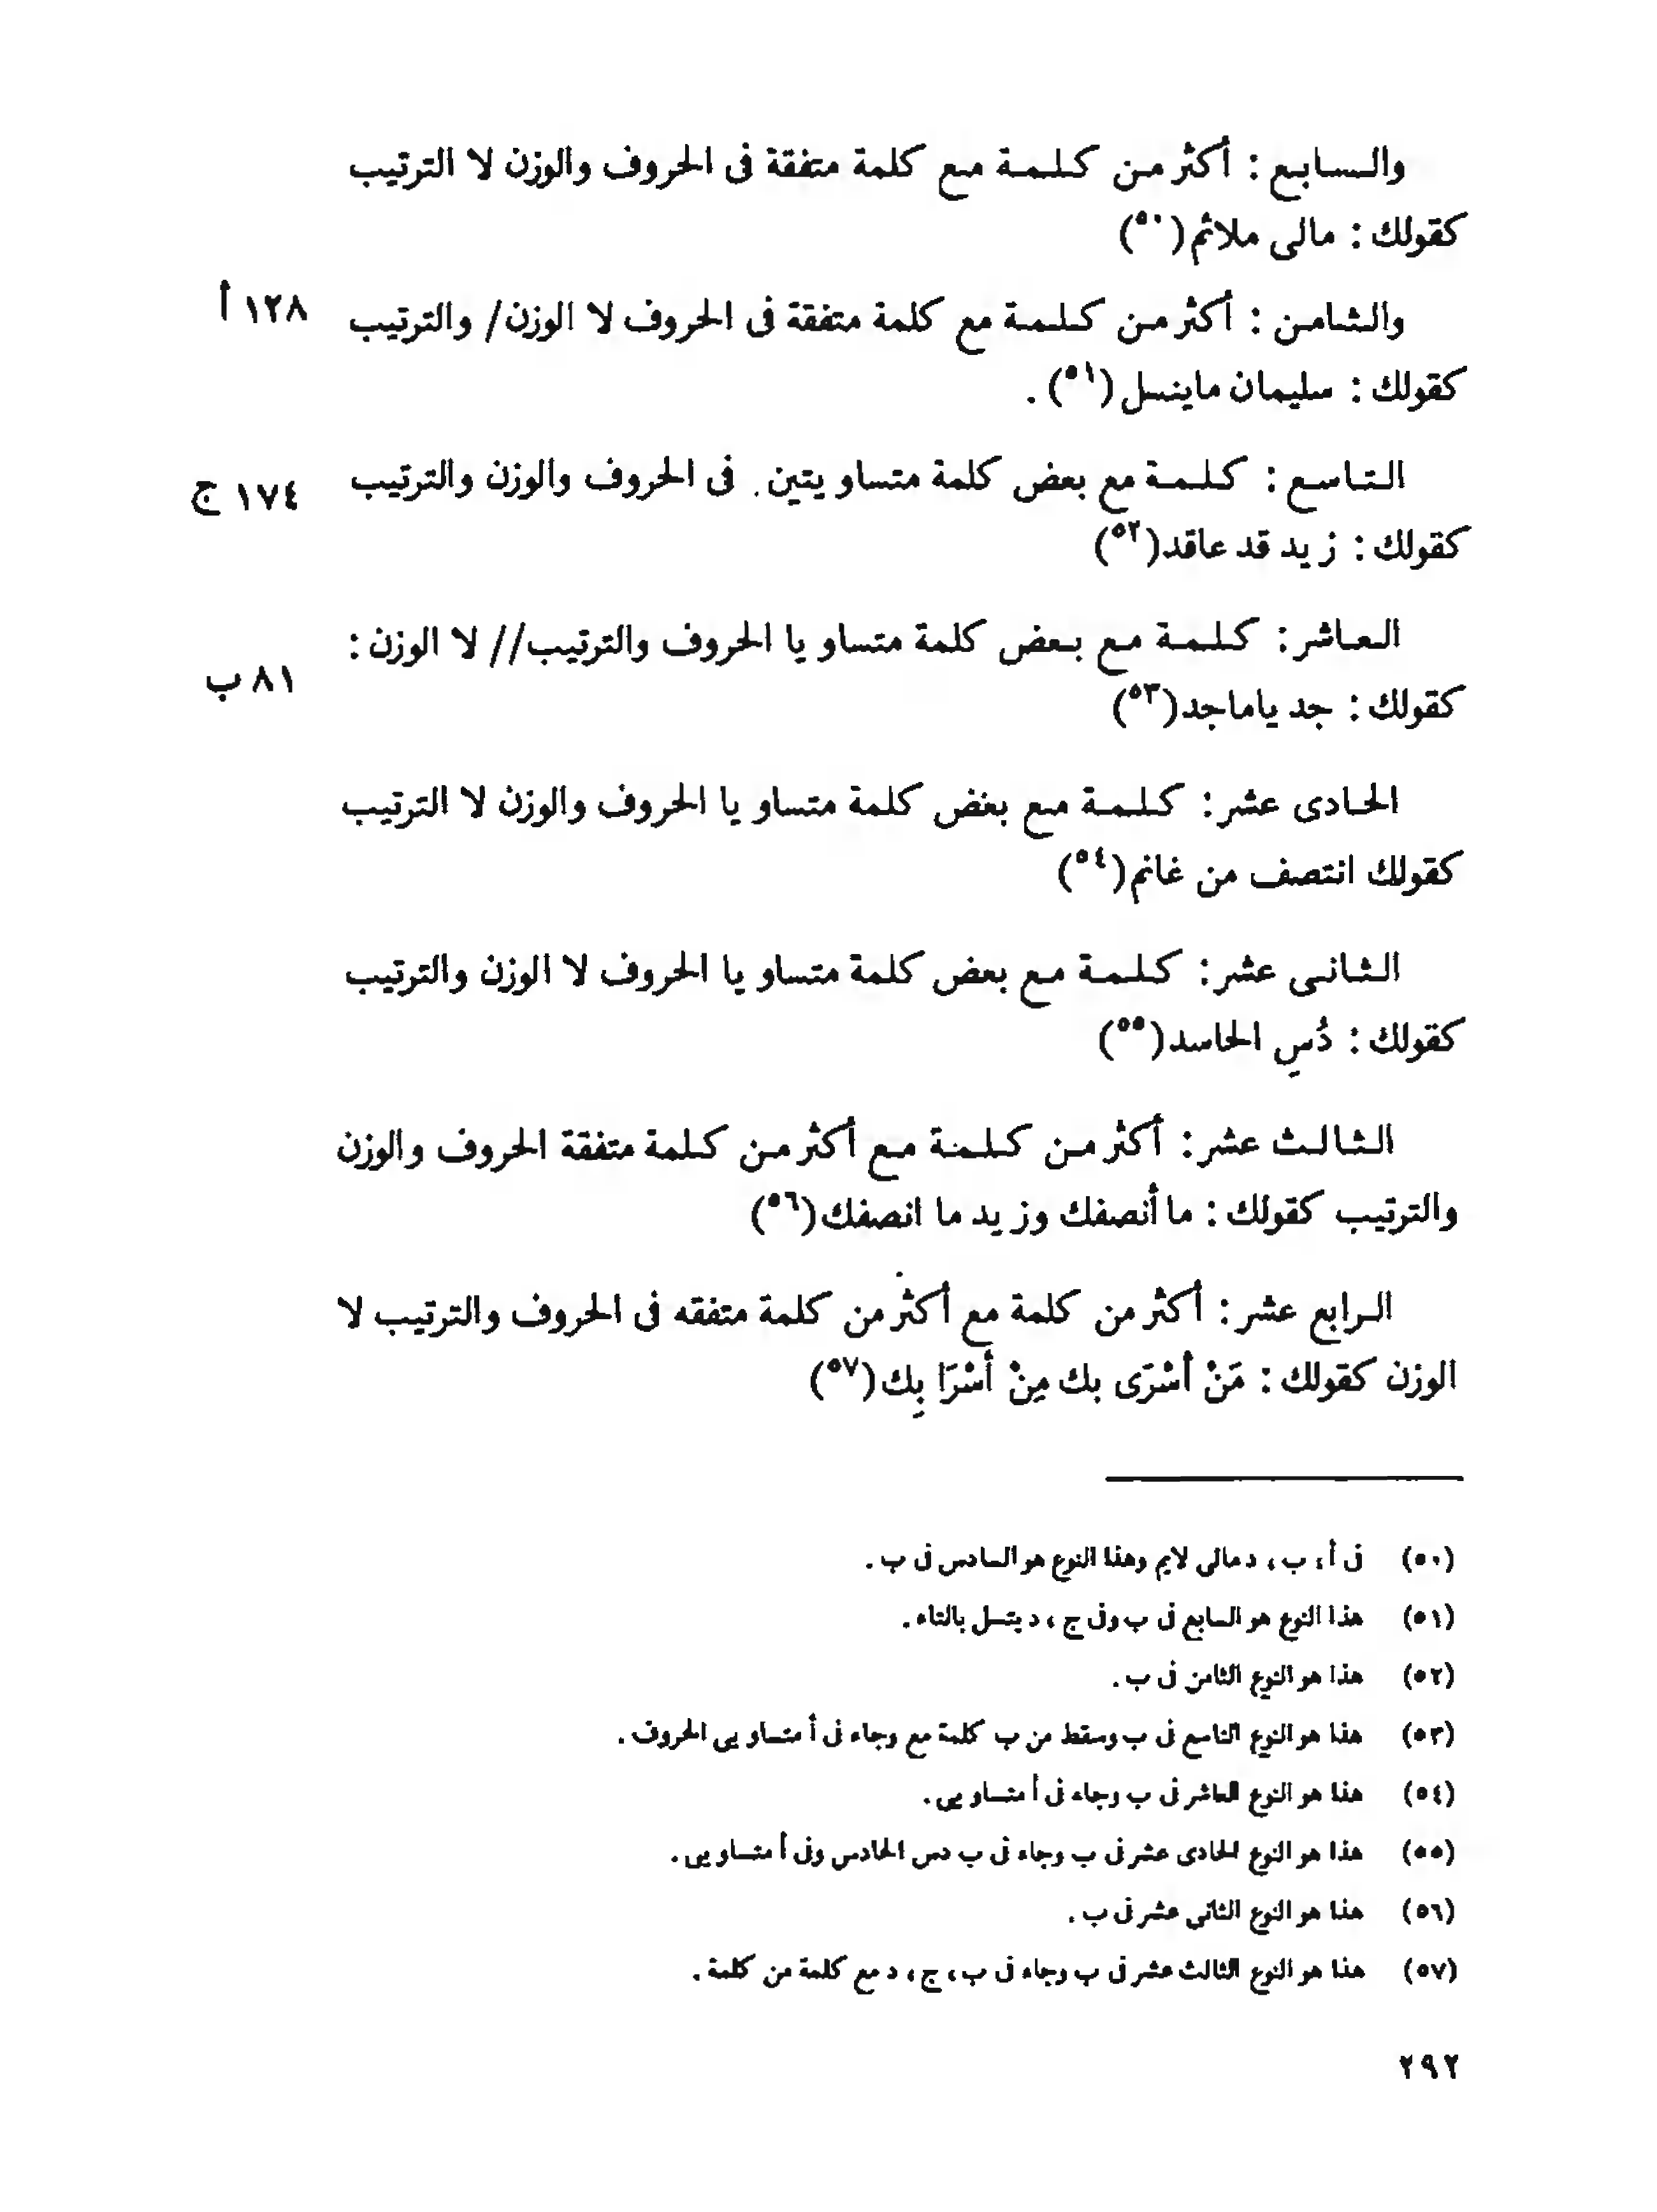 والسابع : أكثر من كلمة مع كلمة متفقة فى الحروف والوزن لا الترتيب
كقولك : مالى ملائم(٥٠)
والثامن : أكثر من كلمة مع كلمة متفقة فى الحروف لا الوزن/ والترتيب ١٢٨ أ
كقولك : سليمان ماينسل(٥١) .
التاسع : كلمة مع بعض كلمة متساويتين . فى الحروف والوزن والترتيب ١٧٤ ج
كقولك : زيد قد عاقد(٥٢)
العاشر : كلمة مع بعض كلمة متساويا الحروف والترتيب// لا الوزن : ٨١ ب
كقولك : جد ياماجد(٥٣)
الحادى عشر : كلمة مع بغض كلمة متساويا الحروف والوزن لا الترتيب
كقولك انتصف من غانم(٥٤)
الثانى عشر : كلمة مع بعض كلمة متساويا الحروف لا الوزن والترتيب
كقولك : دُسِ الحاسد(٥٥)
الثالث عشر : أكثر من كلمة مع أكثر من كلمة متفقة الحروف والوزن
والترتيب كقولك : ما أنصفك وزيد ما انصفك(٥٦)
الرابع عشر : أكثر من كلمة مع أكثر من كلمة متفقه فى الحروف والترتيب لا
الوزن كقولك : مَنْ أسْرَى بك مِنْ أسْرَا بِك(٥٧)
(٥٠) فى أ ، ب ، د مالى لايم وهذا النوع هو السادس فى ب .
(٥١) هذا النوع هو السابع فى ب وفى ج ، د يتسل بالتاء .
(٥٢) هذا هو النوع الثامن فى ب .
(٥٣) هذا هو النوع التاسع فى ب وسقط من ب كلمة مع وجاء فى أ متساويى الحروف .
(٥٤) هذا هو النوع العاشر فى ب وجاء فى أ متساويى .
(٥٥) هذا هو النوع الحادى عشر فى ب وجاء فى ب دس الحادس وفى أ متساويى .
(٥٦) هذا هو النوع الثانى عشر فى ب .
(٥٧) هذا هو النوع الثالث عشر فى ب وجاء فى ب ، ج ، د مع كلمة من كلمة .
٢٩٢